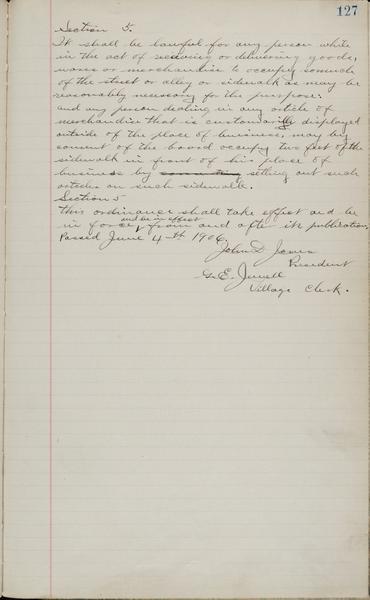 127
Section 5.
It shall be lawful for any person while
in the act of receiving or delivering goods,
wares or merchandise to occupy so much
of the street or alley or sidewalk as may be
reasonably necessary for the purpose:
and any person dealing in any article of
merchandise that is customarily displayed
outside of the place of business, may by
consent of the board occupy two feet of the
sidewalk in front of his place of
business by setting out such
articles on such sidewalk.
Section 5
This ordinance shall take effect and be
in force, and be in effect from and after its publication.
Passed June 4th 1906.
John D Jones
President
G. E. Jewell
Village Clerk.